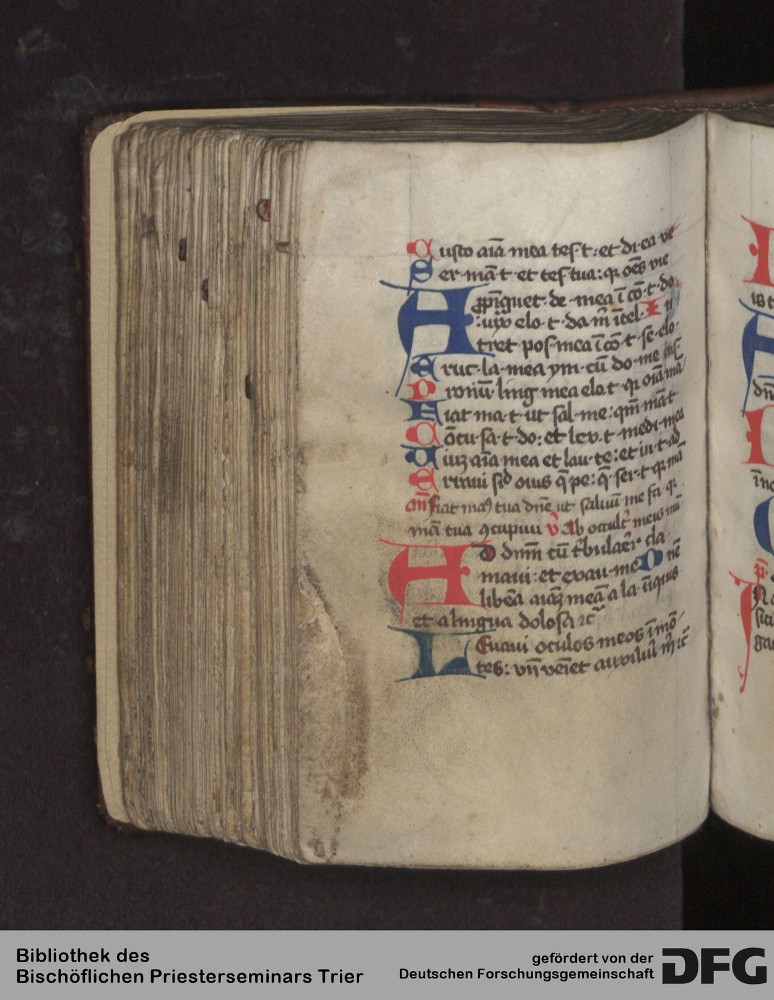 Custo aīa mea tes·t: et di·ea ve
Ser·mā·t·et tes tua: q̄ oēs vie
Appīquet·de·mea ī cō·t·do
: iuxͦ elo·t·da m̄ ītel· In
tret pos·mea ī cō·t·se·elo·
Eruc·la·mea ym·cū do·me ius
Pronūⁿ ling mea elo·t·q̄ oīa ma
Fiat ma·t·ut sal·me: qm̄ mā·t
Cōcu·sa·t·do: et lex·t·medi·mea
Viuz aīa mea et lau·te: et iu·t·ad
Erraui sic̄ ouis q̄ pe: q̄·ser·t·q̄ mā
An̄ fiat maꝰ tua dn̄e ut saluū me fa q̄
mā tua ꝯcupiui v̄ Ab occult' meis mū
AD dnm̄ cū t'bularer cla
maui: et exau·me Dn̄e
libe͛a aīaz meā a la·īiquis
et a lingua dolosa ꝛc̄
Leuaui oculos meos ī mō
tes: vn̄ veīet auxiliū m̄ ꝛc̄
Bibliothek des
Bischöflichen Priesterseminars Trier
gefördert von der
Deutschen Forschungsgemeinschaft
DFG